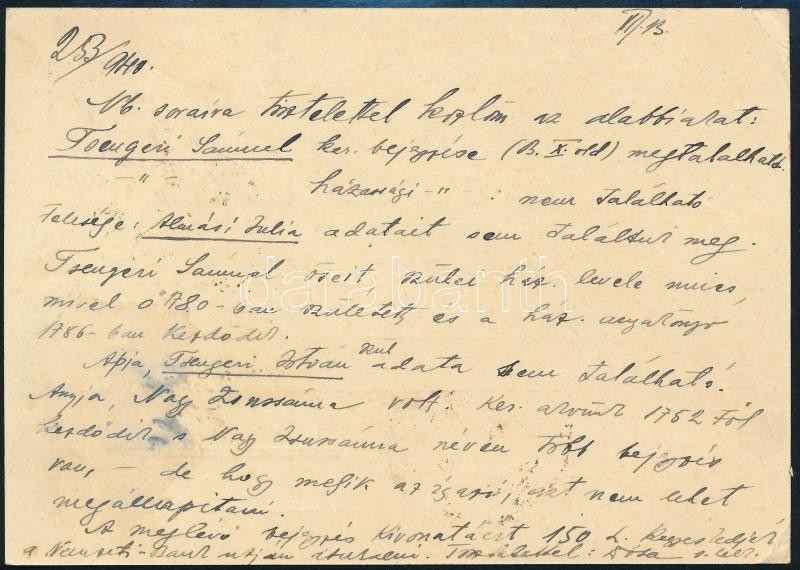 253/940.
VII/13.
Nb. soraira tisztelettel közlöm az alábbiakat:
Csengeri Sámuel ker. bejegyzése (B. X. old) megtalálható.
-"- házassági -"- : nem található
Felesége: Almási Julia adatait sem találtuk meg.
Csengeri Sámuel őseit szülei ház. levele nincs,
mivel ő 1780-ban született, és a ház. anyakönyv
1786-ban kezdődik.
Apja, Csengeri István szül adata sem található.
Anyja, Nagy Zsuzsánna volt. Ker. akvünk 1752 től
kezdődik s Nagy Zsuzsánna néven több bejegyzés
van, – de hogy melyik az igazi, azt nem lehet
megállapítani.
A meglévő bejegyzés kivonatáért 150 L.
a Nemzeti-Bank utján Tisztelettel: Dósa
darabanth